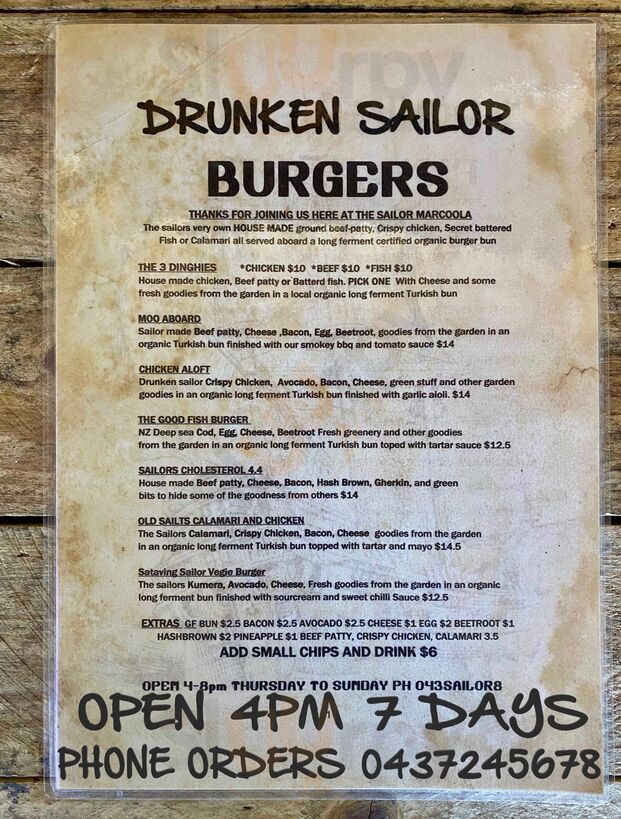 DRUNKEN SAILOR
BURGERS
THANKS FOR JOINING US HERE AT THE SAILOR MARCOOLA
The sailors very own HOUSE MADE ground beef-patty, Crispy chicken, Secret battered
Fish or Calamari all served aboard a long ferment certified organic burger bun
THE 3 DINGHIES *CHICKEN $10 *BEEF $10 *FISH $10
House made chicken, Beef patty or Batterd fish. PICK ONE With Cheese and some
fresh goodies from the garden in a local organic long ferment Turkish bun
MOO ABOARD
Sailor made Beef patty, Cheese ,Bacon, Egg, Beetroot, goodies from the garden in an
organic Turkish bun finished with our smokey bbq and tomato sauce $14
CHICKEN ALOFT
Drunken sailor Crispy Chicken, Avocado, Bacon, Cheese, green stuff and other garden
goodies in an organic long ferment Turkish bun finished with garlic aioli. $14
THE GOOD FISH BURGER
NZ Deep sea Cod, Egg, Cheese, Beetroot Fresh greenery and other goodies
from the garden in an organic long ferment Turkish bun toped with tartar sauce $12.5
SAILORS CHOLESTEROL 4.4
House made Beef patty, Cheese, Bacon, Hash Brown, Gherkin, and green
bits to hide some of the goodness from others $14
OLD SAILTS CALAMARI AND CHICKEN
The Sailors Calamari, Crispy Chicken, Bacon, Cheese goodies from the garden
in an organic long ferment Turkish bun topped with tartar and mayo $14.5
Sataving Sailor Vegie Burger
The sailors Kumera, Avocado, Cheese, Fresh goodies from the garden in an organic
long ferment bun finished with sourcream and sweet chilli Sauce $12.5
EXTRAS GF BUN $2.5 BACON $2.5 AVOCADO $2.5 CHEESE $1 EGG $2 BEETROOT $1
HASHBROWN $2 PINEAPPLE $1 BEEF PATTY, CRISPY CHICKEN, CALAMARI 3.5
ADD SMALL CHIPS AND DRINK $6
OPEN 4-8pm THURSDAY TO SUNDAY PH 043SAILOR8
OPEN 4PM 7 DAYS
PHONE ORDERS 0437245678